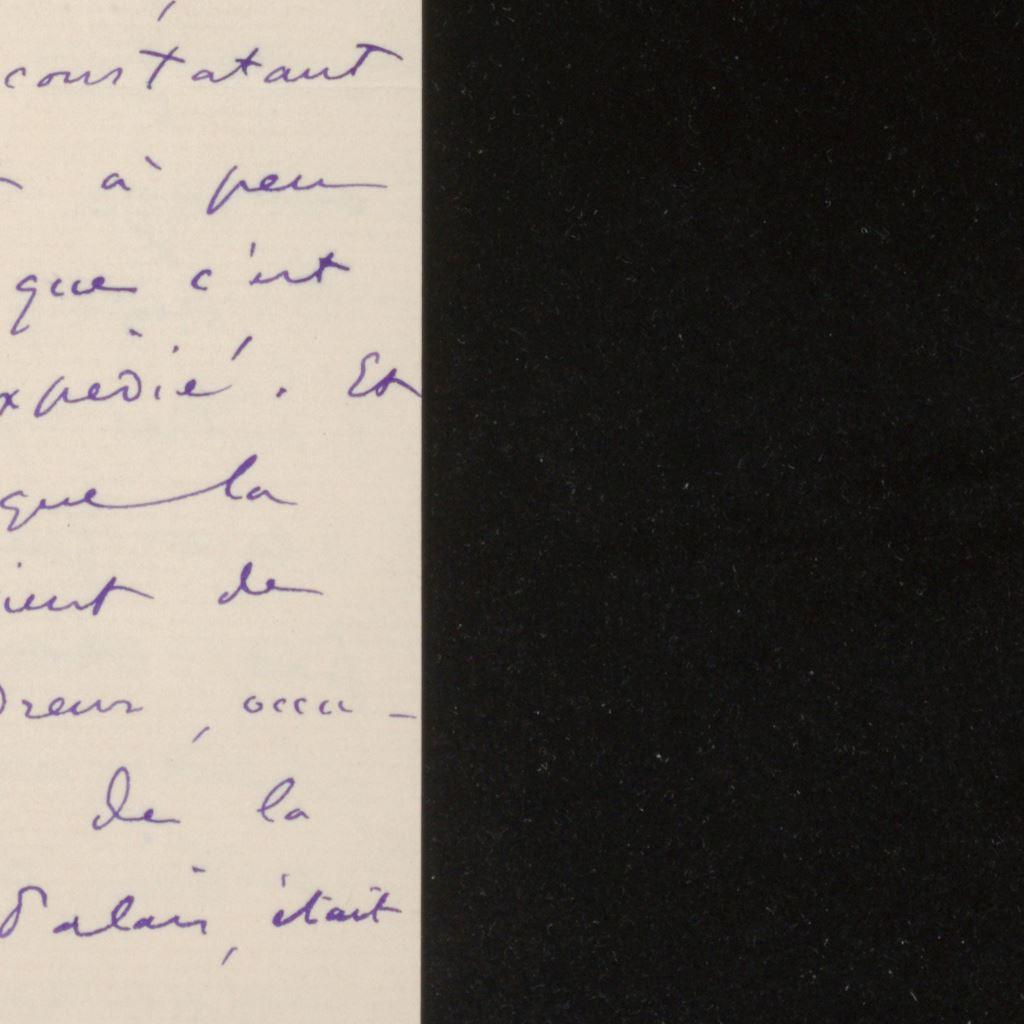 constatant
à peu
que c'est
xpédié. Et
que la
ient de
, occu-
de la
Palais, était